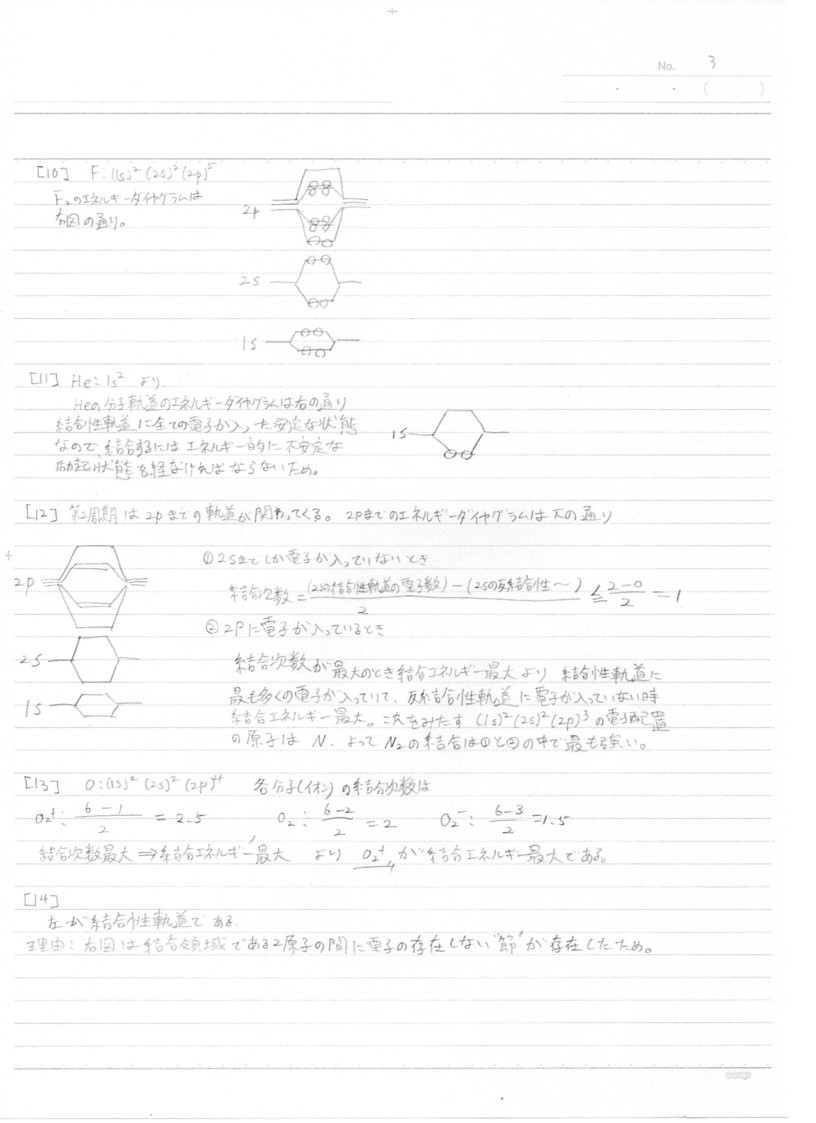 No. 3
[10] F:(1s)² (2s)² (2p)⁵
F₂のエネルギーダイヤグラムは
右図の通り。
2p
2s
1s
[11] He:1s² より
Heの分子軌道のエネルギーダイヤグラムは右の通り
結合性軌道に全ての電子が入った安定な状態
なので、結合するにはエネルギー的に不安定な
励起状態を経なければならないため。
1s
[12] 第2周期は2pまでの軌道が関わってくる。2pまでのエネルギーダイヤグラムは下の通り
2p
2s
1s
①2sまでしか電子が入っていないとき
結合次数 = (2sの結合性軌道の電子数) - (2sの反結合性〜) / 2 ≦ 2-0 / 2 = 1
②2Pに電子が入っているとき
結合次数が最大のとき結合エネルギー最大より 結合性軌道に
最も多くの電子が入っていて、反結合性軌道に電子が入っていない時
結合エネルギー最大。これをみたす (1s)² (2s)² (2p)³ の電子配置
の原子は N. よって N₂の結合は①と②の中で最も強い。
[13] O:(1s)² (2s)² (2p)⁴ 各分子(イオン)の結合次数は
O₂⁺: 6-1 / 2 = 2.5 O₂: 6-2 / 2 = 2 O₂⁻: 6-3 / 2 = 1.5
結合次数最大 ⇒ 結合エネルギー最大 より O₂⁺が結合エネルギー最大である。
[14]
左が結合性軌道である.
理由:右図は結合領域である2原子の間に電子の存在しない"節"が存在したため。